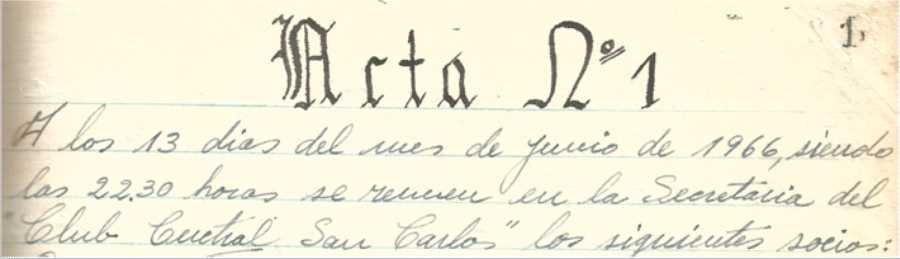 1
Acta Nº 1
A los 13 dias del mes de junio de 1966, siendo
las 22.30 horas se reunen en la Secretaria del
"Club Central San Carlos" los siguientes socios: